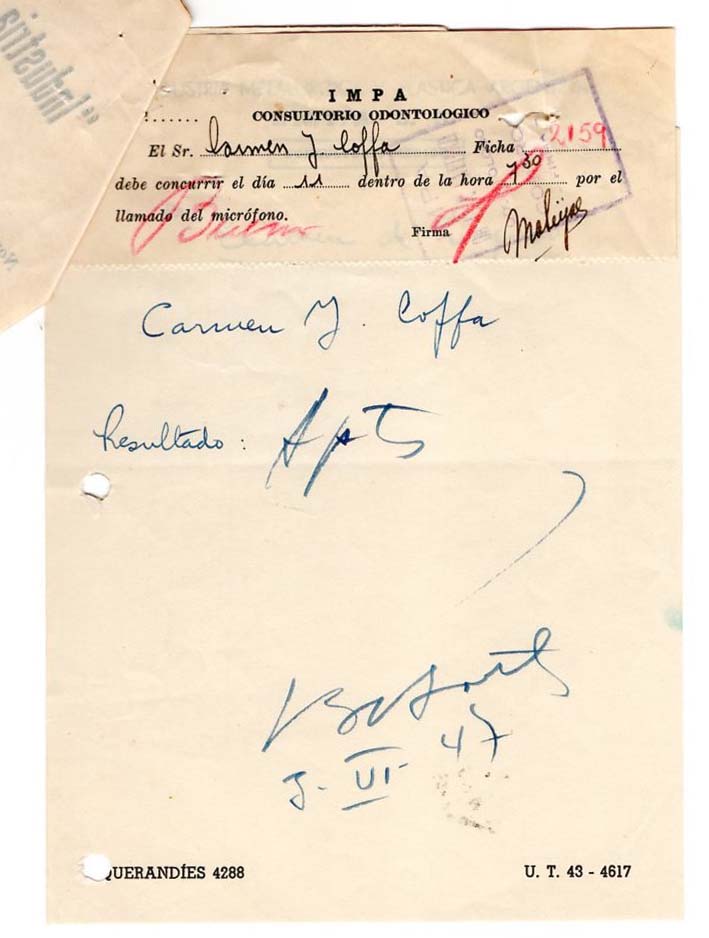 Industria
I M P A
CONSULTORIO ODONTOLOGICO
El Sr. Carmen J. Coffa Ficha 2159
debe concurrir el día 11 dentro de la hora 7 30 por el
llamado del micrófono.
Bueno
Firma
Carmen J. Coffa
Resultado: Apto
3-VI-47
QUERANDÍES 4288
U. T. 43 - 4617